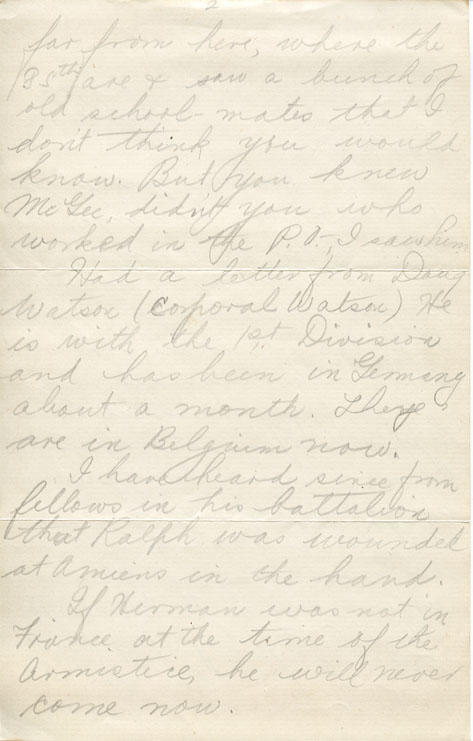 2
far from here, where the
85th are & saw a bunch of
old school-mates that I
don't think you would
know. But you knew
McGee, didn't you who
worked in the P.O., I saw him
Had a letter from Doug
Watson (Corporal Watson) He
is with the 1st. Division
and has been in Germany
about a month. They
are in Belgium now.
I have heard since from
fellows in his battalion
that Ralph was wounded
at Amiens in the hand.
If Herman was not in
France at the time of the
Armistice, he will never
come now.